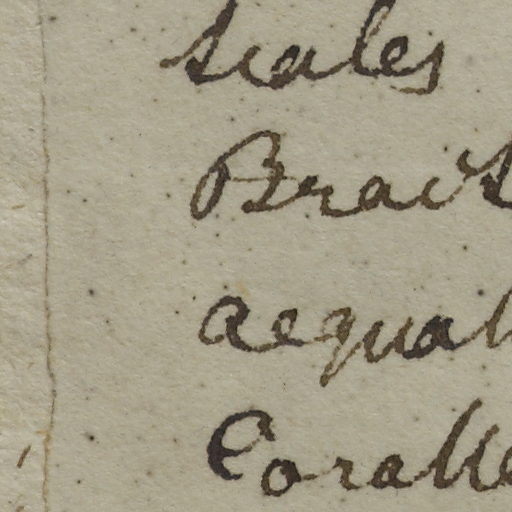 scales
Bract
aequal
Coralle